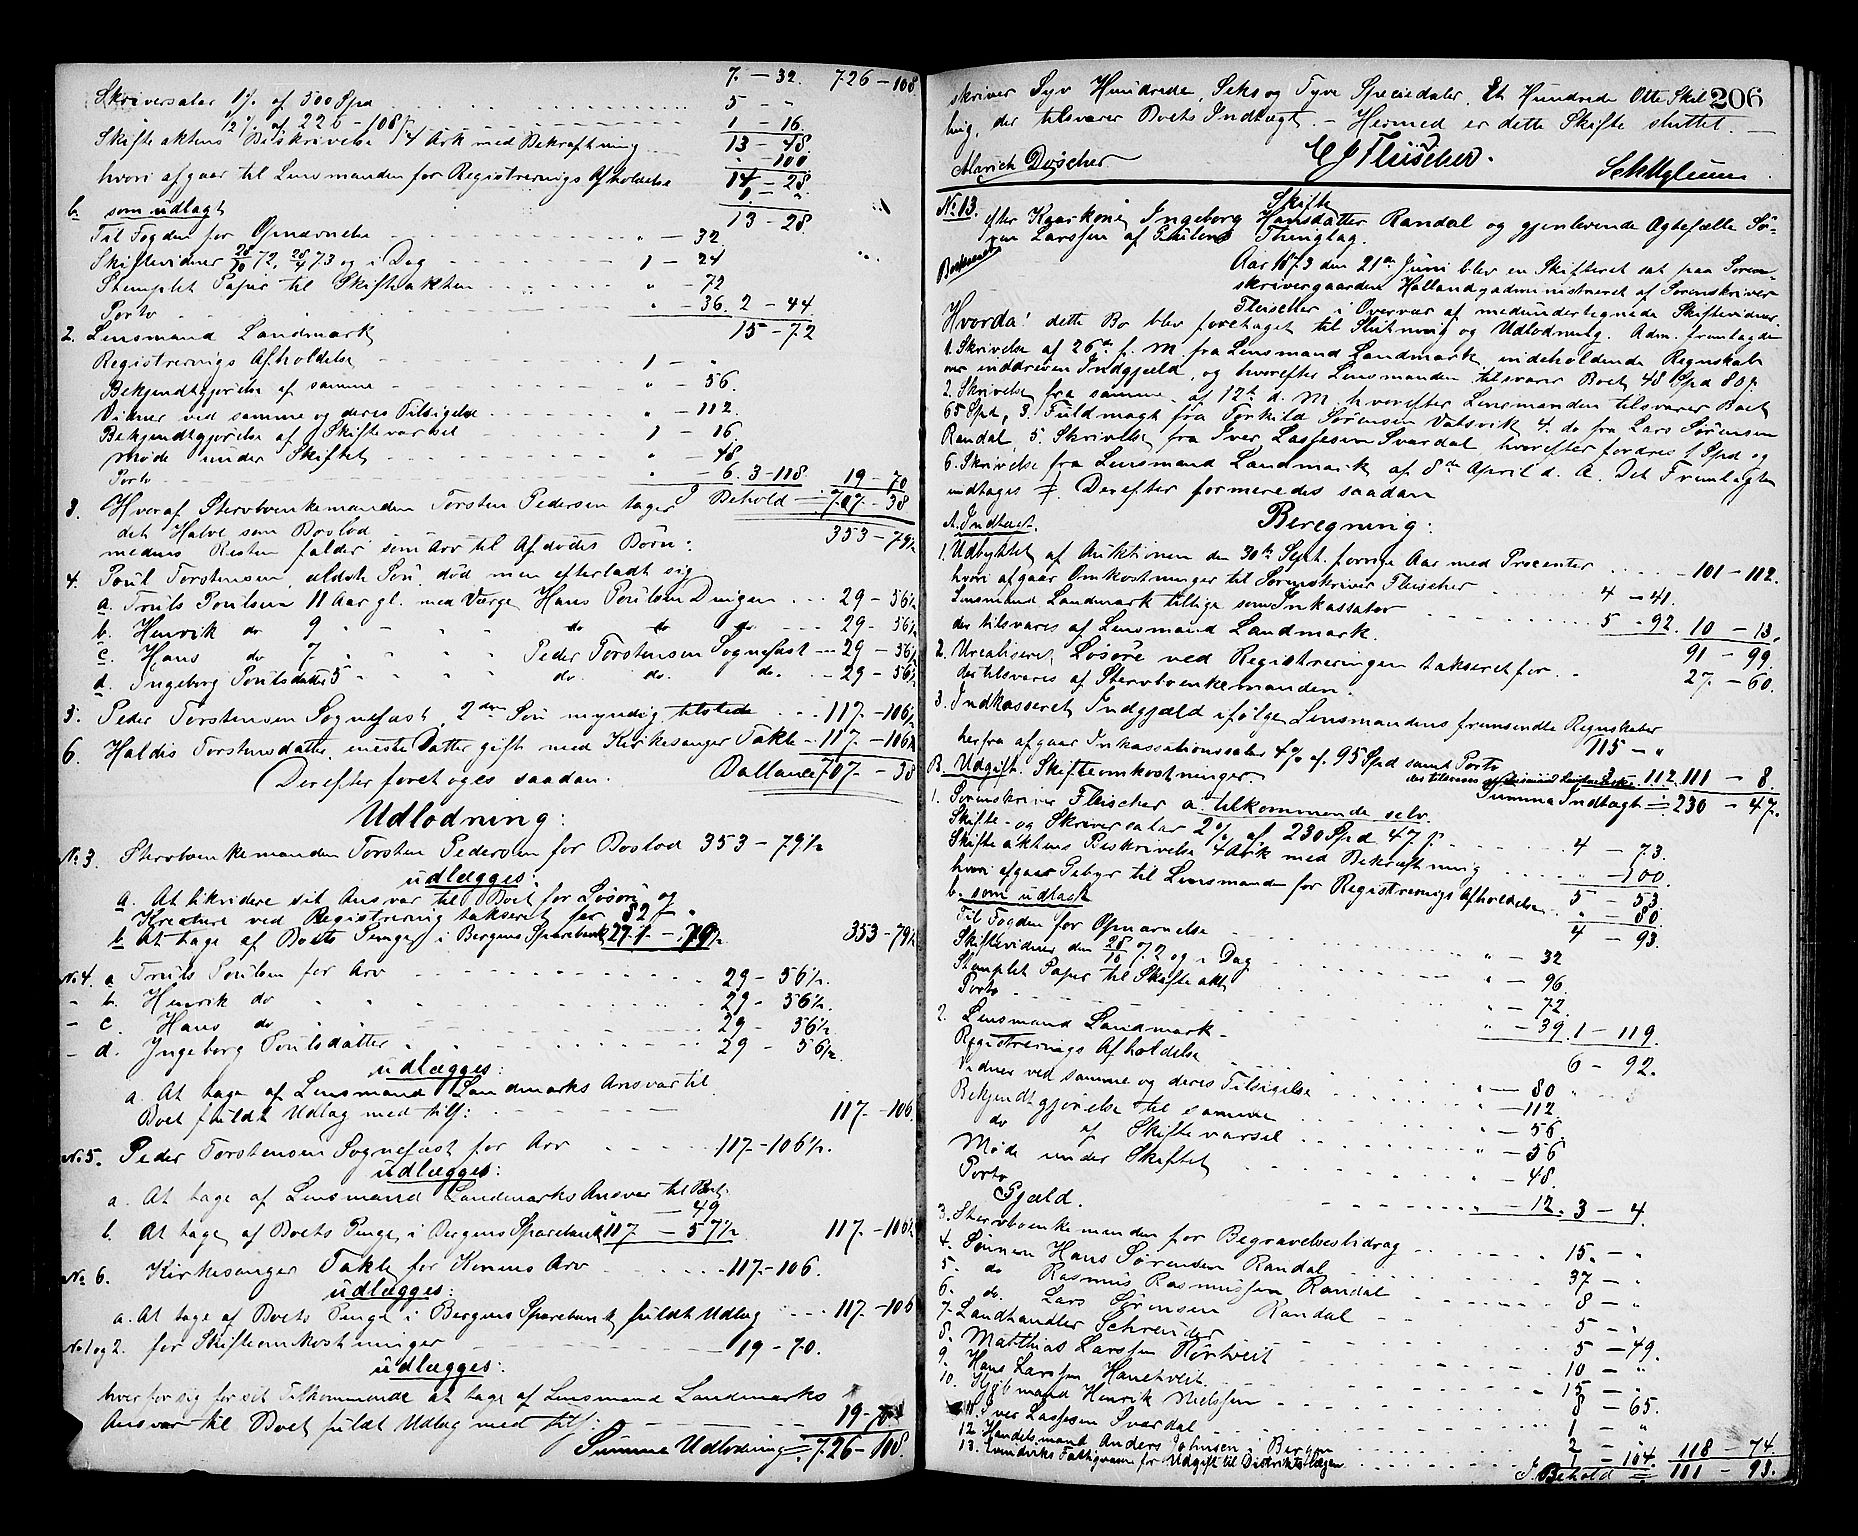 7. — 32. 726 — 108.
Skriversalær 1% af 500 Spd . . . 5 - "
½% af 226 - 108 β . . . 1 — 16
Skifteaktens Beskrivelse 4 Ark med Bekræftning . . . 13 — 48.
" — 100
hvori afgaar til Lensmanden for Registrerings Afholdelse 14 — 28.
1 — "
b. som udlagt 13 — 28
Til Fogden for Opnævnelse . . . " — 32.
Skiftevidner 28/10 72, 28/4 73 og i Dag . . . 1 — 24
Stemplet Papir til Skifteakten . . . " — 72
Porto . . . " — 36. 2 — 44.
2. Lensmand Landmark 15 — 72
Registrerings Afholdelse 1 — "
Bekjendtgjørelse af samme . . . " — 56.
Vidner ved samme og deres Tilsigelse . . . " — 112.
Bekjendtgjørelse af Skiftevarsel . . . 1 — 16
Møde under Skiftet . . . " — 48
Porto . . . " — 6. 3 — 118. 19 — 70
I Behold = 707 — 38
3. Heraf Stervboenkemanden Torsten Pedersen tager
det Halve som Boslod 353 — 79½
medens Resten falder som Arv til Afdødes Børn:
4. Poul Torstensen, ældste Søn, død men efterladt sig
a. Truls Poulsen 11 Aar gl. med Værge Hans Poulsen Dingen . . . 29 — 56½
b. Henrik do 9 " - " " do do do . . . 29 — 56½
c. Hans do 7 " " " Peder Torstensen Sognefæst . . . 29 — 56½
d. Ingeborg Poulsdatter 5 " " " do. do. do. . . . 29 — 56½
5. Peder Torstensen Sognefæst, 2den Søn myndig, tilstede . . . 117. — 106½
6. Haldis Torstensdatter, eneste Datter gift med Kirkesanger Takle . . . 117. — 106½
Ballance 707. — 38
Derefter foretoges saadan.
Udlodning:
No. 3. Stervboenkemanden Torsten Pedersen for Boslod 353 — 79½
udlægges:
a. At likvidere sit Ansvar til Boet for Løsøre og
Kreature ved Registrering takseret for 82 — "
b. At tage af Boets Penge i Bergens Sparebank 271 — 79½. 353 — 79½
No. 4. a Truls Poulsen for Arv . . . 29 — 56½.
- b. Henrik do . . . 29 — 56½
- c. Hans do . . . 29 — 56½
- d. Ingeborg Poulsdatter . . . 29 — 56½.
udlægges:
a. At tage af Lensmand Landmarks Ansvar til
Boet fuldt Udlæg med tils: . . . 117. — 106.
No. 5. Peder Torstensen Sognefæst for Arv . . . 117 — 106½.
udlægges:
a. At tage af Lensmand Landmarks Ansvar til Boet
— 49
b. At tage af Boets Penge i Bergens Sparebank 117 — 57½. 117. — 106½
No. 6. Kirkesanger Takle for Konens Arv . . . 117. — 106.
udlægges:
a. At tage af Boets Penge i Bergens Sparebank fuldt Udlæg . . . 117. — 106
No. 1 og 2. for Skifteomkostninger . . . 19 — 70.
udlægges:
hver for sig for sit Tilkommende at tage af Lensmand Landmarks
Ansvar til Boet fuldt Udlæg med tils: . . . 19 — 70
Summa Udlodning = 726 — 108
206
skriver Syv Hundrede, Seks og Tyve Speciedaler, Et Hundrede Otte Skil-
ling, der tilsvarer Boets Indtægt. — Hermed er dette Skifte sluttet.
Alarich Döscher C J Fleischer.
No. 13. Skifte
efter Kaarkone Ingeborg Hansdatter Randal og gjenlevende Ægtefælle Sø-
ren Larssen af Thinglag.
Aar 1873 den 21de Juni blev en Skifteret sat paa Soren-
skrivergaarden Halland, administreret af Sorenskriver
Fleischer i Overvær af medundertegnede Skiftevidner
Hvorda! dette Bo blev foretaget til Slutning og Udlodning. Adm. fremlagde
1. Skrivelse af 26de f. M. fra Lensmand Landmark, indeholdende Regnskab
over inddreven Indgjæld, og hvorefter Lensmanden tilsvarer Boet 48 Spd 80 β.
2. Skrivelse fra samme af 12te d. M. hvorefter Lensmanden tilsvarer Boet
65 Spd, 3. Fuldmagt fra Torkild Sørensen Vatsvik 4. do fra Lars Sørensen
Randal, 5. Skrivelse fra Iver Lassesen Svardal, hvorefter fordres 1 Spd og
6. Skrivelse fra Lensmand Landmark af 8de April d. A. Det Fremlagte
indtages #. Derefter formeredes saadan
Beregning:
A. Indtægt.
1. Udbyttet af Auktionen den 30te Sept. forrige Aar med Procenter . . . 101 — 112.
hvori afgaar Omkostninger til Sorenskriver Fleischer . . . 4 — 41.
Lensmand Landmark tillige som Inkassator . . . 5 — 92. 10 — 13.
der tilsvares af Lensmand Landmark. 91 — 99.
2. Urealiseret Løsøre ved Registreringen takseret for . . . 27 — 60.
der tilsvares af Stervboenkemanden.
3. Indkasseret Indgjæld ifølge Lensmandens fremsendte Regnskaber
115 — "
herfra afgaar Inkassationssalær 4% af 95 Spd samt Porto
3. 112. 111 — 8.
Summa Indtægt = 230 — 47.
B. Udgift. Skifteomkostninger
1. Sorenskriver Fleischer a. tilkommende selv.
Skifte- og Skriversalær 2% af 230 Spd 47 β. . . . 4 — 73.
Skifteaktens Beskrivelse 4 Ark med Bekræftning . . . " — 100.
5 — 53.
hvori afgaar Gebyr til Lensmanden for Registrerings Afholdelse . . . " — 80
b. som udlagt 4 — 93.
Til Fogden for Opnævnelse . . . " — 32
Skiftevidner den 28/10 72 og i Dag . . . " — 96.
Stemplet Papir til Skifteakt . . . " — 72.
Porto . . . " — 39. 1 — 119.
2. Lensmand Landmark. 6 — 92.
Registrerings Afholdelse . . . " — 80
Vidner ved samme og deres Tilsigelse . . . " — 112.
Bekjendtgjørelse til samme . . . " — 56
do af Skiftevarsel . . . " — 56
Møde under Skiftet . . . " — 48.
Porto . . . " — 12. 3 — 4.
Gjæld.
3. Stervboenkemanden for Begravelsesbidrag . . . 15. — "
4. Sønnen Hans Sørensen Randal . . . 37 — "
5. do Rasmus Rasmussen Randal . . . 8 — "
6. do. Lars Sørensen Randal . . . 5 — "
7. Landhandler Schreuder . . . 5 — 49.
8. Matthias Larssen Nortveit . . . 10 — "
9. Hans Larssen Hanetveit . . . 15 — "
10. Kjøbmand Henrik Nielssen . . . 8 — 65.
11. Iver Lassesen Svardal . . . 1 — "
12. Handelsmand Anders Johnsen i Bergen . . . 2 — "
13. Evindviks Fattigvæsen for Udgift til Distriktslægen . . . 1 — 104. 118 — 74.
I Behold = 111 — 93.